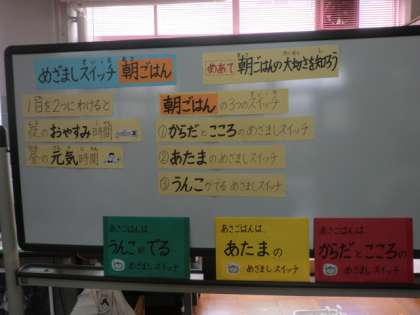 めざましスイッチ 朝ごはん
めあて 朝ごはんの大切さを知ろう
1日を2つにわけると
夜のおやすみ時間
昼の元気時間
朝ごはんの3つのスイッチ
①からだとこころのめざましスイッチ
②あたまのめざましスイッチ
③うんこがでるめざましスイッチ
あさごはんは、
うんこがでる
めざましスイッチ
あさごはんは、
あたまの
めざましスイッチ
あさごはんは、
からだとこころの
めざましスイッチ